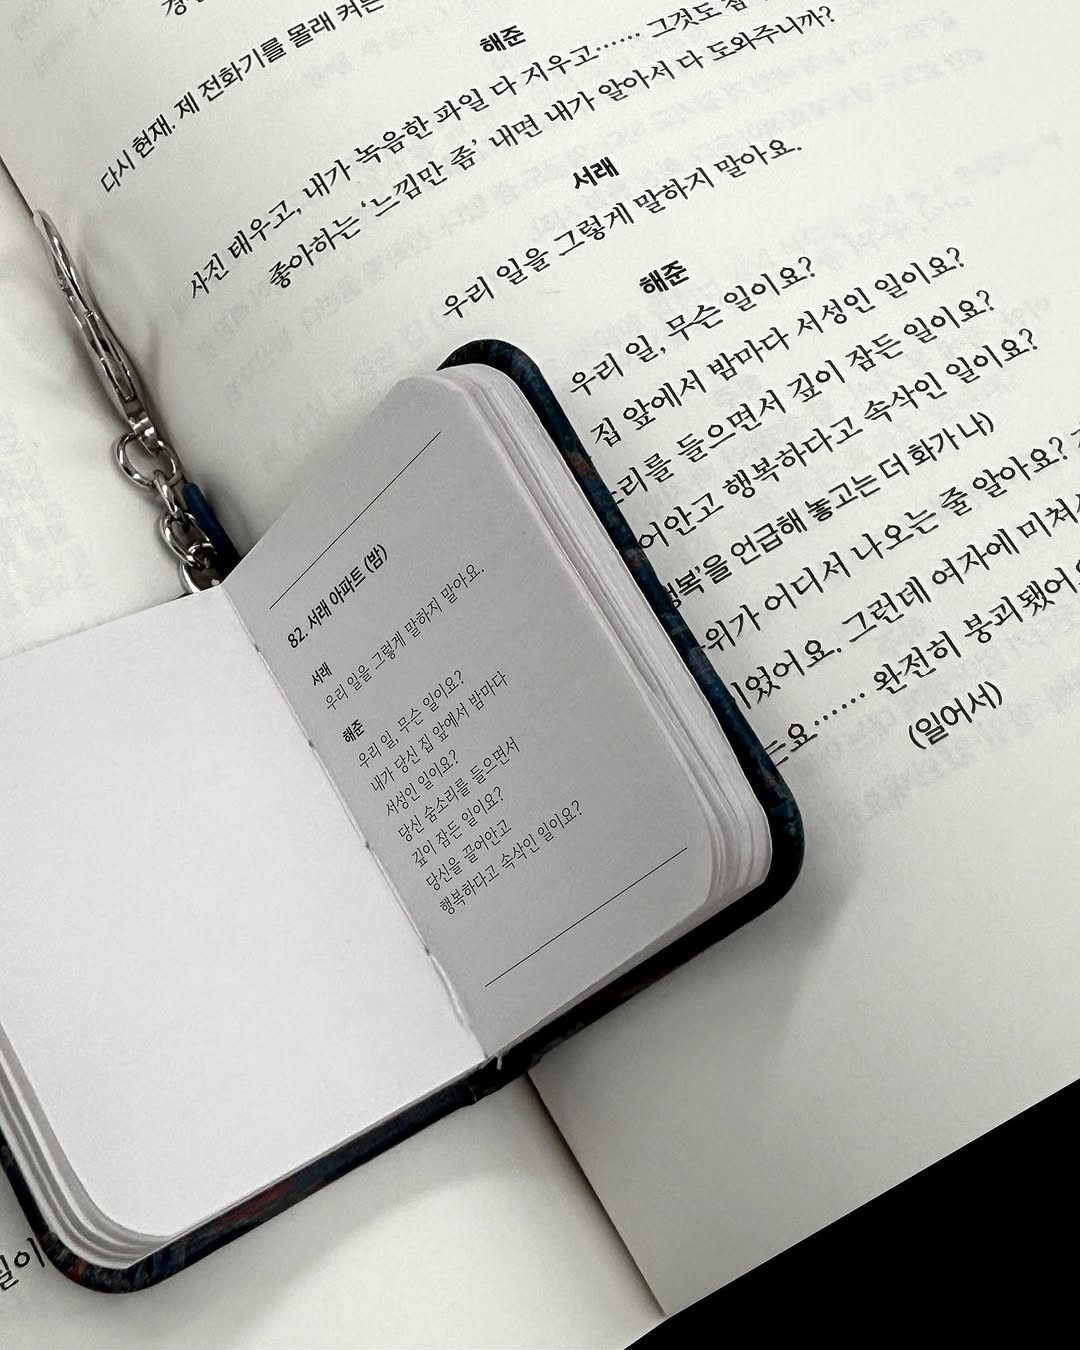 다시 현재. 제 전화기를 몰래 켜는
해준
사진 태우고, 내가 녹음한 파일 다 지우고…… 그것도
좋아하는 ‘느낌만 좀’ 내면 내가 알아서 다 도와주니까?
서래
우리 일을 그렇게 말하지 말아요.
해준
우리 일, 무슨 일이요?
집 앞에서 밤마다 서성인 일이요?
들으면서 깊이 잠든 일이요?
행복하다고 속삭인 일이요?
언급해 놓고는 더 화가 나)
어디서 나오는 줄 알아요?
그런데 여자에 미쳐서
완전히 붕괴됐어요
(일어서)
82. 서래 아파트 (밤)
서래
우리 일을 그렇게 말하지 말아요.
해준
우리 일, 무슨 일이요?
내가 당신 집 앞에서 밤마다
서성인 일이요?
당신 숨소리를 들으면서
깊이 잠든 일이요?
당신을 끌어안고
행복하다고 속삭인 일이요?